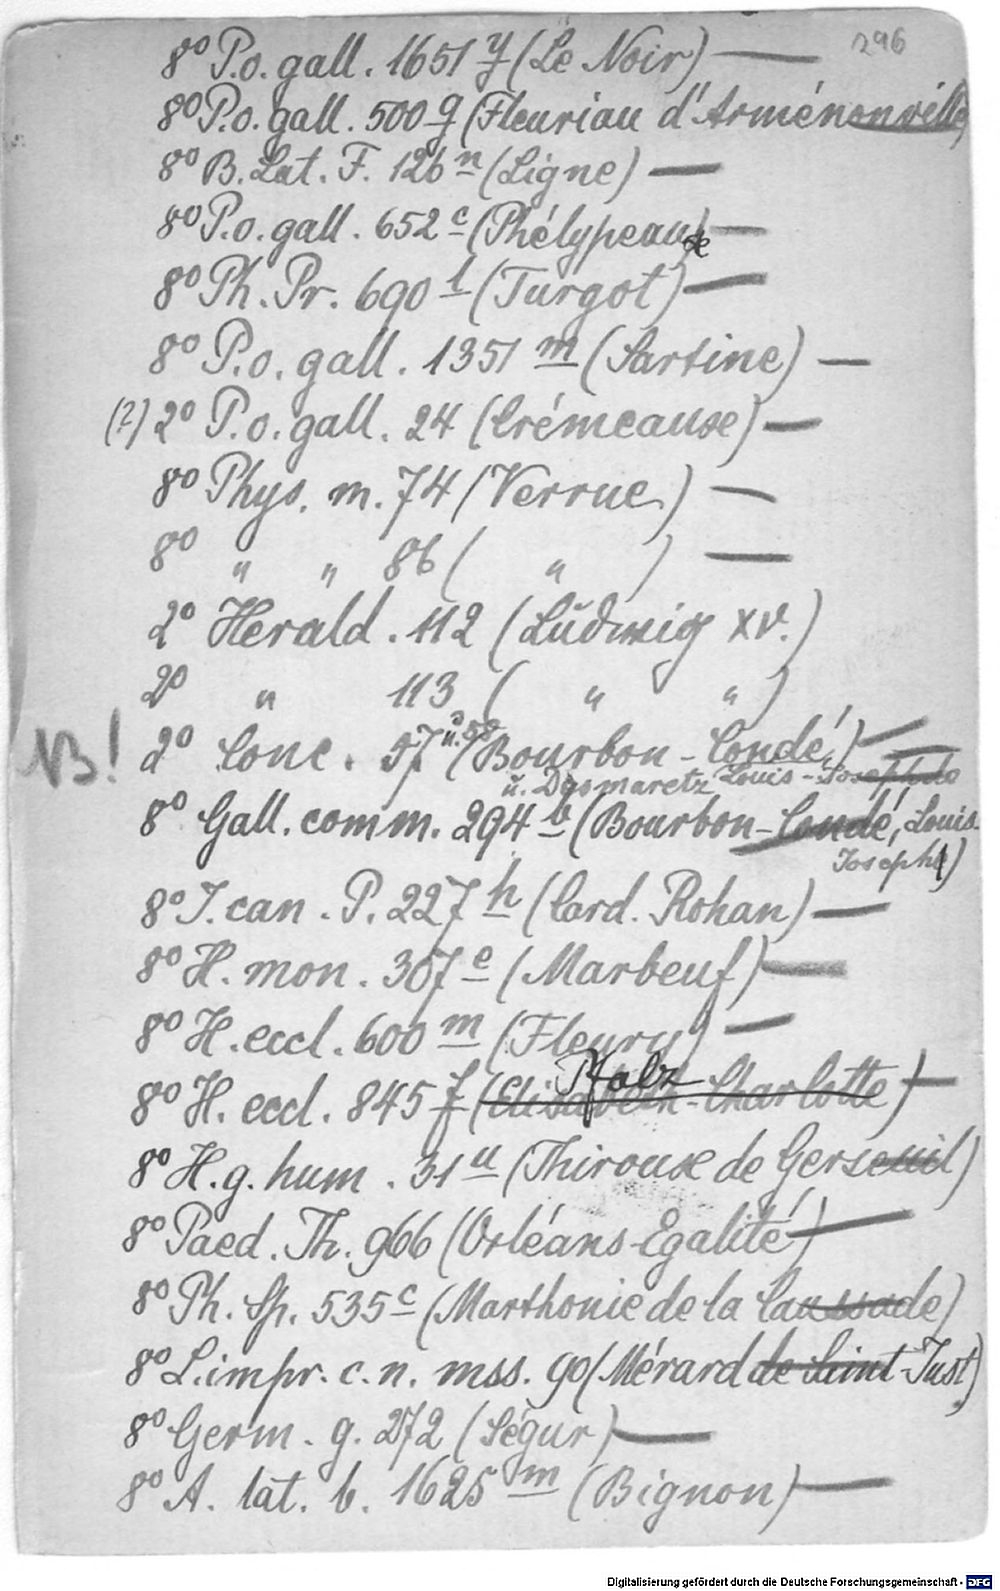 296
8° P.o. gall. 1651 y (Le Noir) —
8° P.o. gall. 500 g (Fleuriau d'Arménonville)
8° B. Lat. F. 126 n (Ligne) —
8° P.o. gall. 652 c (Phélypeaux) —
8° Ph. Pr. 690 l (Turgot) —
8° P.o. gall. 1351 m (Sartine) —
(?) 2° P.o. gall. 24 (Crémeaux) —
8° Phys. m. 74 (Verrue) —
8° " " 86 ( " ) —
2° Herald. 112 (Ludwig XV.)
2° " 113 ( " " )
NB! 2° Conc. 57 u. 58 (Bourbon-Condé,) —
u. Desmaretz Louis-Joseph de
8° Gall. comm. 294 b (Bourbon-Condé, Louis-
Joseph)
8° J. can. P. 227 h (Card. Rohan) —
8° H. mon. 307 e (Marbeuf) —
8° H. eccl. 600 m (Fleury) —
Pfalz
8° H. eccl. 845 f (Elisabeth-Charlotte) —
8° H. g. hum. 31 u (Thiroux de Gerseuil)
8° Paed. Th. 966 (Orléans-Egalité) —
8° Ph. Sp. 535 c (Marthonie de la Caussade)
8° L. impr. c. n. mss. 90 (Mérard de Saint-Just)
8° Germ. g. 272 (Ségur) —
8° A. lat. b. 1625 m (Bignon) —
Digitalisierung gefördert durch die Deutsche Forschungsgemeinschaft - DFG